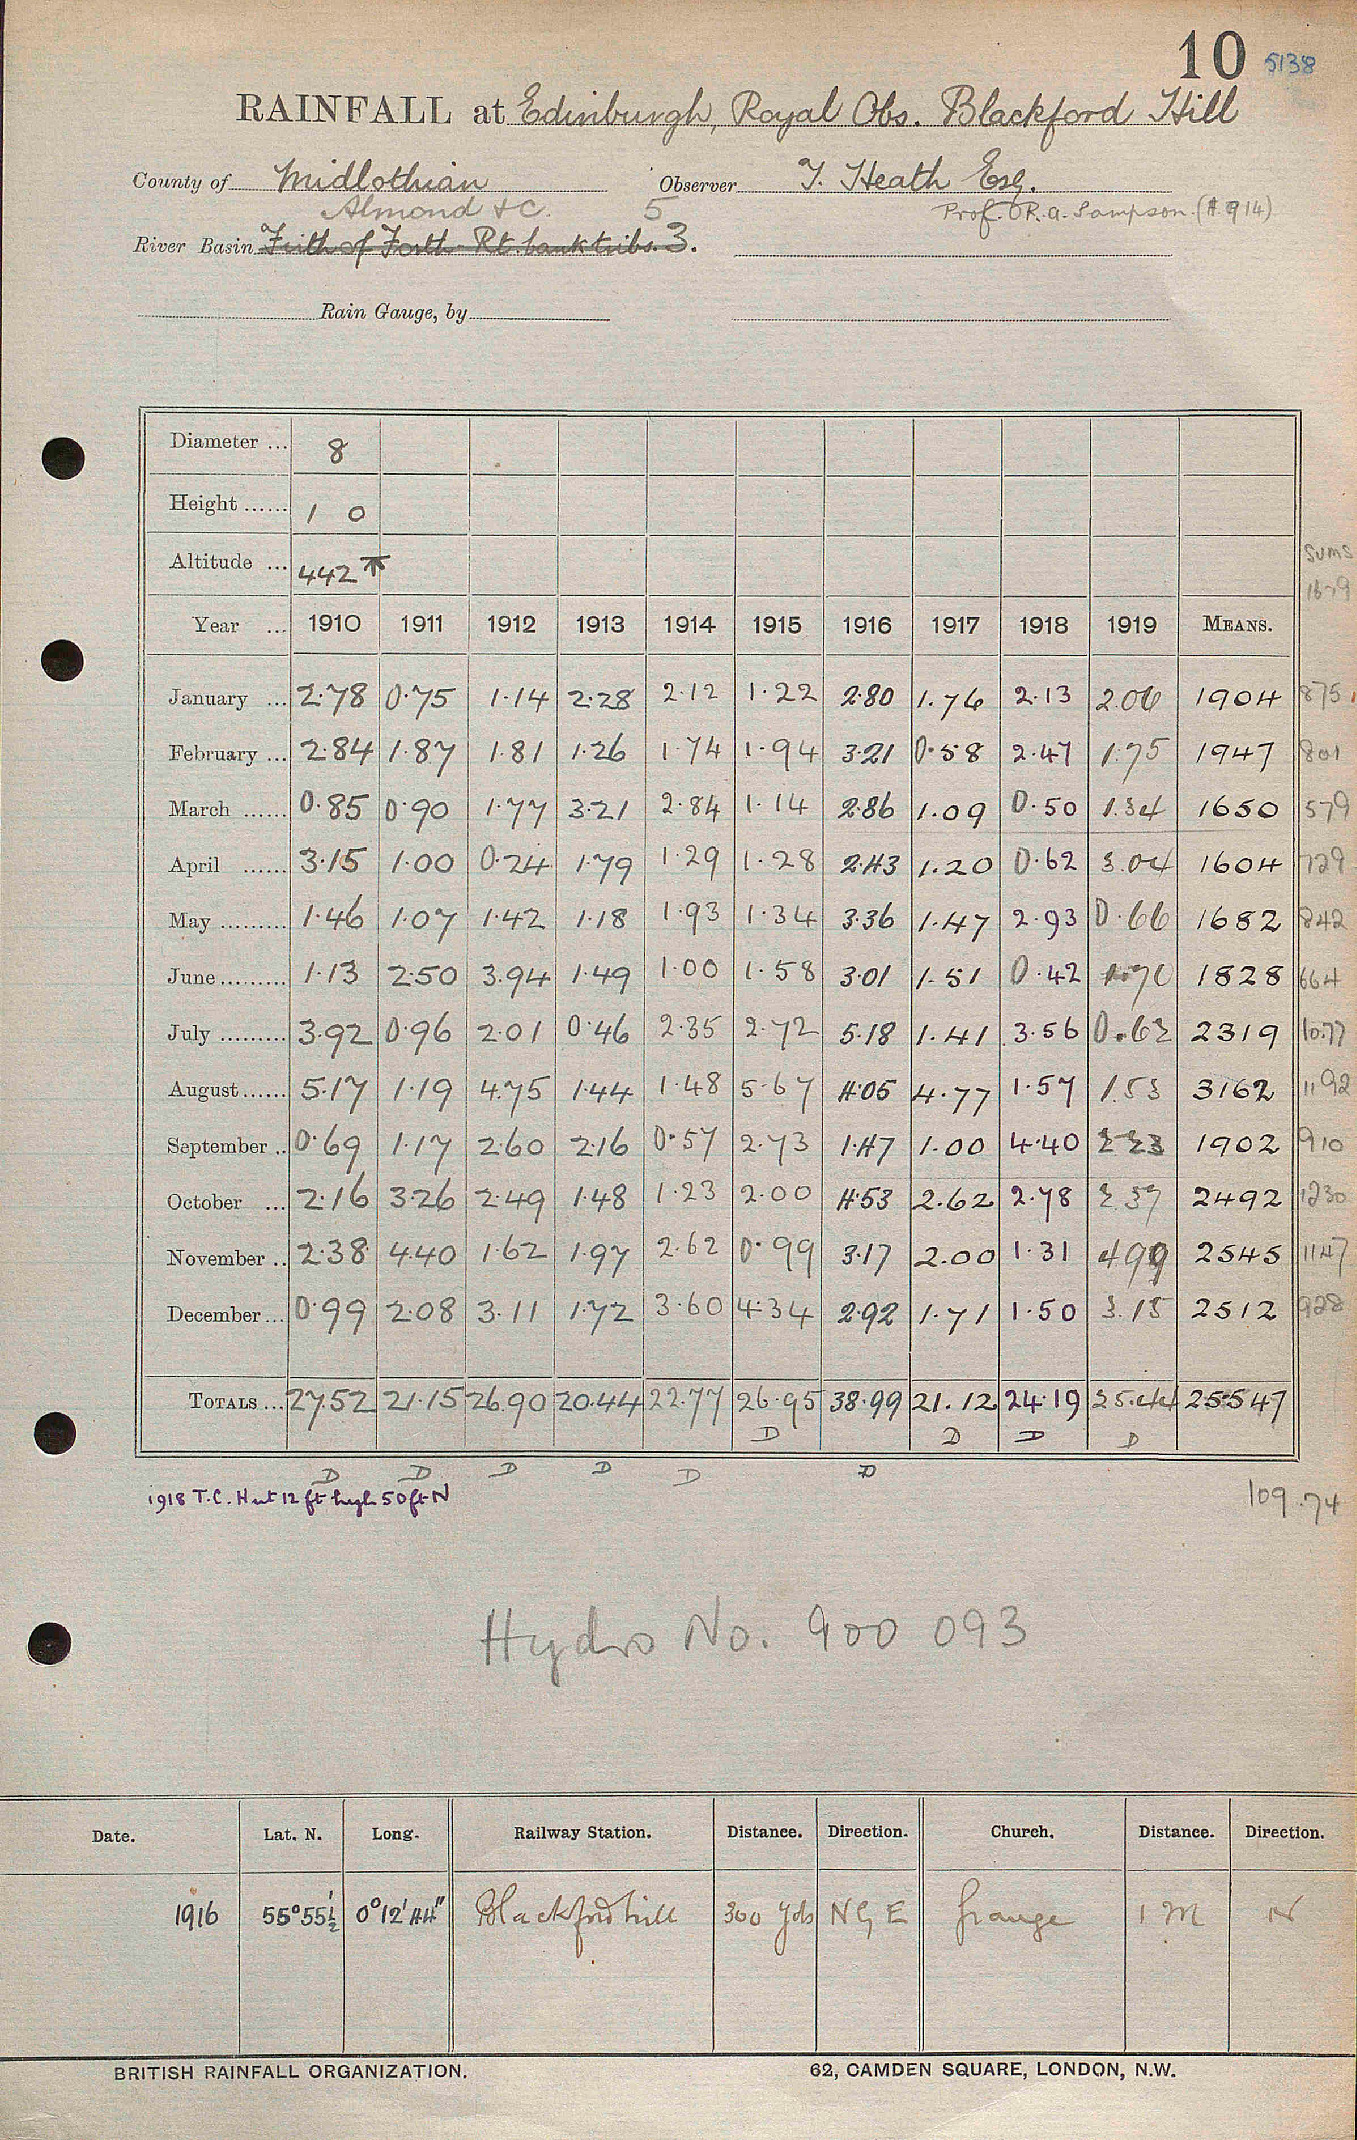 10 5138
RAINFALL at Edinburgh, Royal Obs. Blackford Hill
County of Midlothian Observer T. Heath Esq.
Almond &c. 5 Prof. R.A. Sampson (4.9.14)
River Basin Frith of Forth Rt. bank tribs. 3.
Rain Gauge, by
Diameter ... 8
Height ...... 1 0
Altitude ... 442 sums
Year ... 1910 1911 1912 1913 1914 1915 1916 1917 1918 1919 MEANS.
January ... 2.78 0.75 1.14 2.28 2.12 1.22 2.80 1.76 2.13 2.06 1904 875
February ... 2.84 1.87 1.81 1.26 1.74 1.94 3.21 0.58 2.47 1.75 1947 801
March ...... 0.85 0.90 1.77 3.21 2.84 1.14 2.86 1.09 0.50 1.34 1650 579
April ...... 3.15 1.00 0.24 1.79 1.29 1.28 2.43 1.20 0.62 3.04 1604 729
May ......... 1.46 1.07 1.42 1.18 1.93 1.34 3.36 1.47 2.93 0.66 1682 842
June ......... 1.13 2.50 3.94 1.49 1.00 1.58 3.01 1.51 0.42 1.70 1828 664
July ......... 3.92 0.96 2.01 0.46 2.35 2.72 5.18 1.41 3.56 0.62 2319 1077
August ...... 5.17 1.19 4.75 1.44 1.48 5.67 4.05 4.77 1.57 1.53 3162 1192
September .. 0.69 1.17 2.60 2.16 0.57 2.73 1.47 1.00 4.40 2.23 1902 910
October ... 2.16 3.26 2.49 1.48 1.23 2.00 4.53 2.62 2.78 2.37 2492 1230
November .. 2.38 4.40 1.62 1.97 2.62 0.99 3.17 2.00 1.31 4.99 2545 1147
December ... 0.99 2.08 3.11 1.72 3.60 4.34 2.92 1.71 1.50 3.15 2512 928
TOTALS ... 27.52 21.15 26.90 20.44 22.77 26.95 38.99 21.12 24.19 25.44 25547
D D D D
D D D D D D
1918 T.C. Hut 12 ft high 50 ft N 109.74
Hydro No. 900 093
Date. Lat. N. Long. Railway Station. Distance. Direction. Church. Distance. Direction.
1916 55°55½' 0°12'44" Blackford hill 300 yds N by E Grange 1 M N
BRITISH RAINFALL ORGANIZATION. 62, CAMDEN SQUARE, LONDON, N.W.